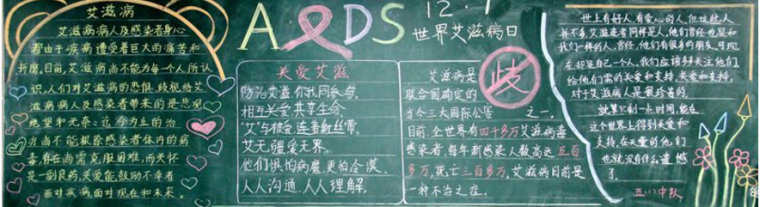 艾滋病
艾滋病病人及感染者身心
者由于疾病遭受着巨大的痛苦和
折磨,目前,艾滋病尚不能为每个人所认
识,人们对艾滋病的恐惧、歧视给艾
滋病病人及感染者带来的是悲观
绝望和无奈:迄今为止的治
疗尚不能根除感染者体内的病
毒,存在尚需克服困难,而关怀
是一副良药,关爱能鼓励不幸者
面对疾病面对现在和未来。
AIDS
12.1
世界艾滋病日
关爱艾滋
防治艾滋 你我同参与。
相互关爱 共享生命
"艾"与被爱 连着红丝带。
艾无疆 爱无界。
他们惧怕病魔,更怕冷漠。
人人沟通,人人理解。
艾滋病是
联合国确定的
当今三大国际公害
之一。
目前,全世界有四千多万艾滋病毒
感染者,每年新感染人数高达五百
多万,死亡三百多万,艾滋病目前是
一种不治之症。
歧
世上有好人,有爱心的人,但这些人
并不多,艾滋患者同样是人,他们曾经也是和
我们一样的人,曾经,他们有很多的朋友,可现
在却是自己一个人,我们应该多关注他们
给他们需的关爱和支持,关爱和支持,
对于艾滋病人是最好的药。
就算只剩一点时间,能在
这个世界上得到关爱和
支持,在关爱的他们
也就没有什么遗憾
了。
五(1)中队